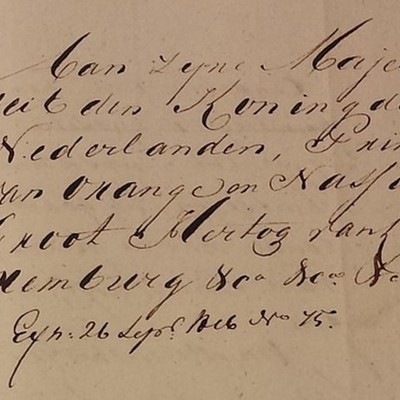 Aan zyne Maje
teit den Koning d
Nederlanden, Prin
van orange en Nass
Groot Hertog van
xemburg &ca &ca &c
Exh: 26 Sept No 75.